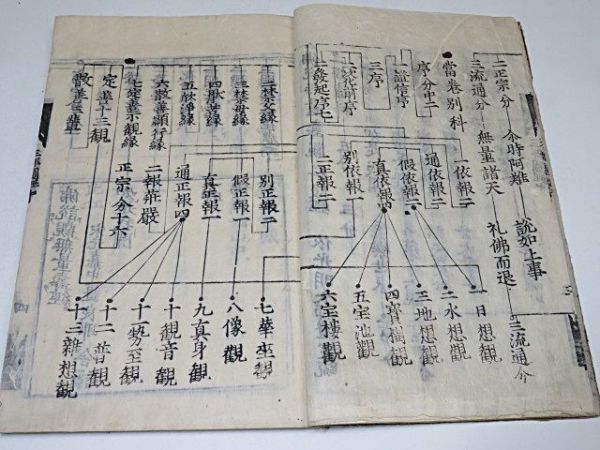 二正宗分 尒時阿難 說如上事
三流通分 無量諸天 礼佛而退 三流通分
當卷別科
序分中二
一證信序
三序
二發起序七
一依報二
通依報二
假依報二
真依報四
別依報一
二正報二
一日想觀
二水想觀
三地想觀
四寶樹觀
五宝池觀
六宝樓觀
二禁父縁
三禁母縁
四猒苦縁
五欣淨縁
六散善顯行縁
七定善示觀縁
定善十三觀
散善三輩
別正報二
假正報一
真正報一
通正報四
二報莊嚴
正宗分十六
七華座觀
八像觀
九真身觀
十觀音觀
十一勢至觀
十二普觀
十三雜想觀